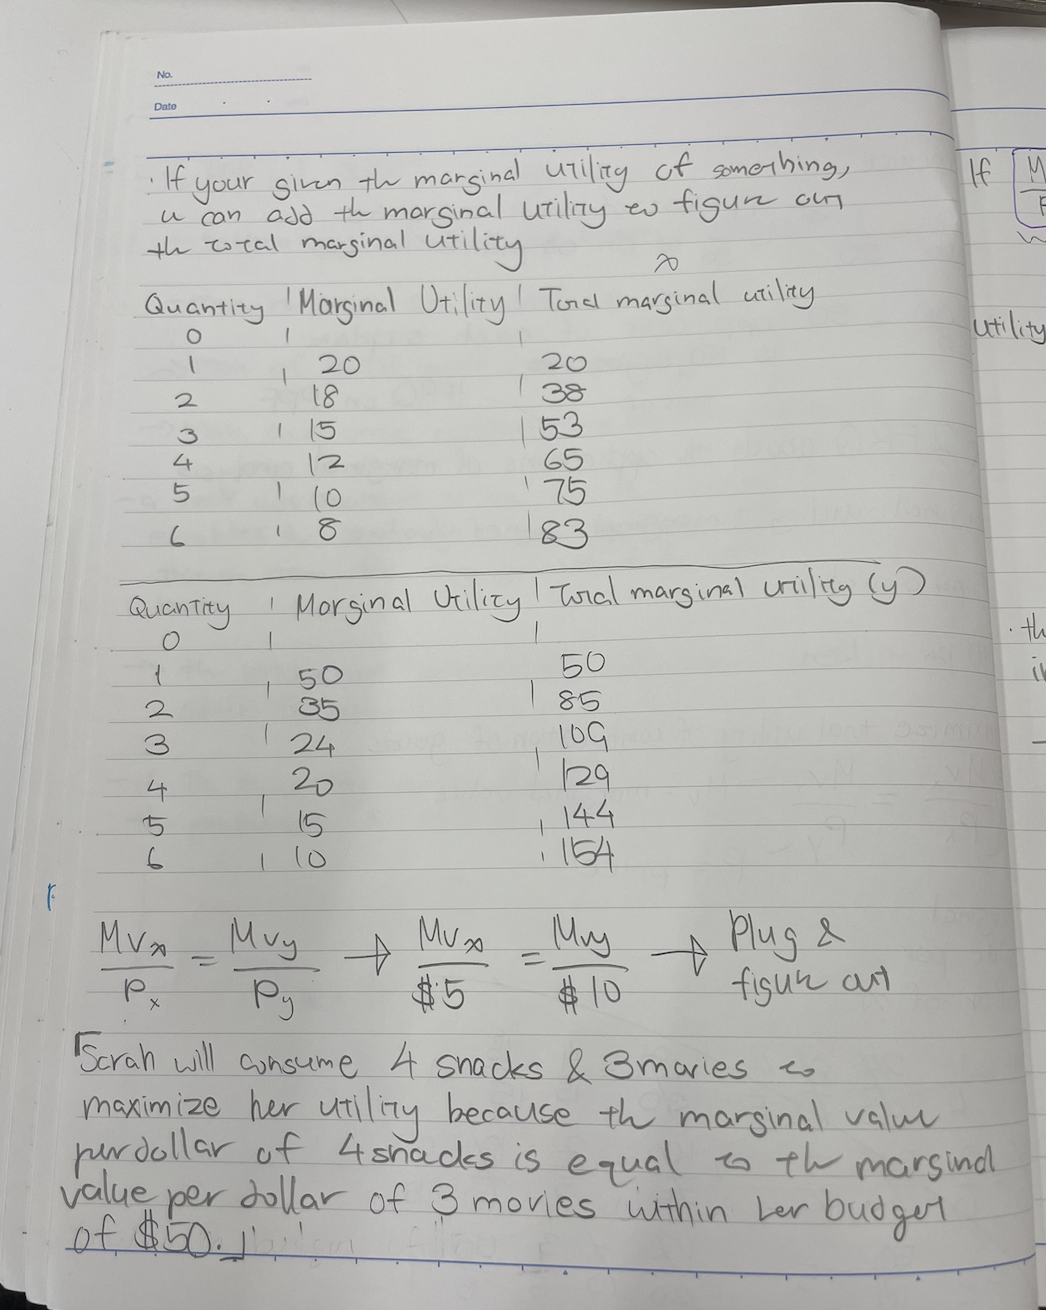 No.
Date
· If your given th marginal utility of something,
u can add th marginal utility to figure out
th total marginal utility
x
Quantity | Marginal Utility | Total marginal utility
0
1 | 20 | 20
2 | 18 | 38
3 | 15 | 53
4 | 12 | 65
5 | 10 | 75
6 | 8 | 83
Quantity | Marginal Utility | Total marginal utility (y)
0
1 | 50 | 50
2 | 35 | 85
3 | 24 | 109
4 | 20 | 129
5 | 15 | 144
6 | 10 | 154
MVx/Px = MVy/Py → MVx/$5 = MVy/$10 → Plug & figure out
「Sarah will consume 4 snacks & 3 movies to
maximize her utility because th marginal value
per dollar of 4 snacks is equal to th marginal
value per dollar of 3 movies within her budget
of $50.」
If
utility
· th